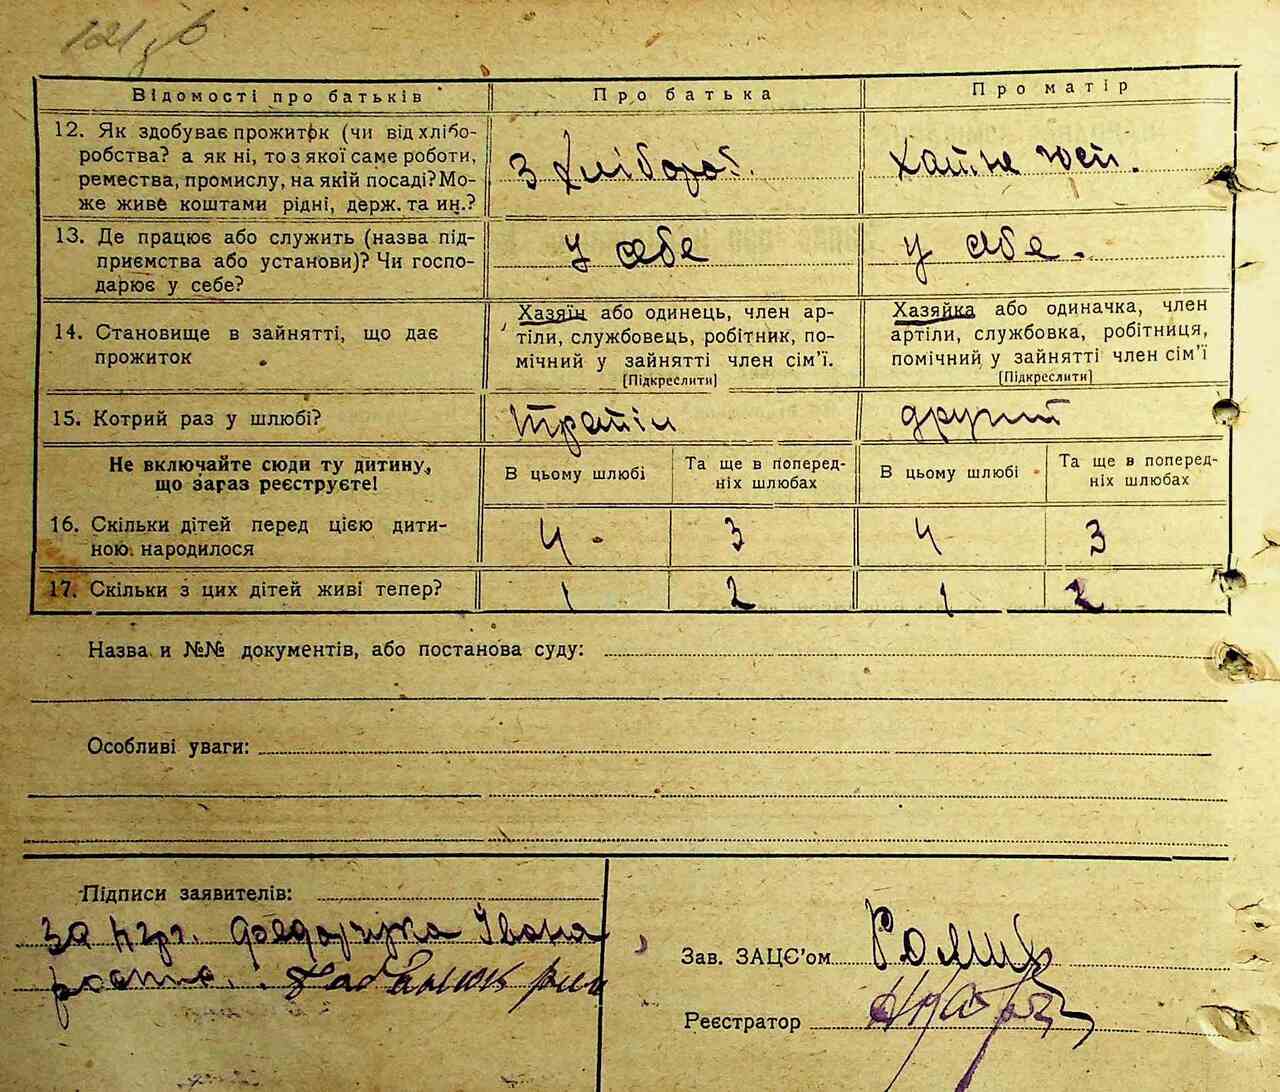 121 зв
Відомості про батьків
Про батька
Про матір
12. Як здобуває прожиток (чи від хлібо-
робства? а як ні, то з якої саме роботи,
ремества, промислу, на якій посаді? Мо-
же живе коштами рідні, держ. та ин.?
З хлібороб.
хатнє госп.
13. Де працює або служить (назва під-
приємства або установи)? Чи госпо-
дарює у себе?
у себе
у себе.
14. Становище в зайнятті, що дає
прожиток
Хазяїн або одинець, член ар-
тіли, службовець, робітник, по-
мічний у зайнятті член сім'ї.
[Підкреслити]
Хазяйка або одиначка, член
артіли, службовка, робітниця,
помічний у зайнятті член сім'ї
[Підкреслити]
15. Котрий раз у шлюбі?
другий
Не включайте сюди ту дитину,
що зараз реєструєте!
В цьому шлюбі
Та ще в поперед-
ніх шлюбах
В цьому шлюбі
Та ще в поперед-
ніх шлюбах
16. Скільки дітей перед цією дити-
ною народилося
4 3 4 3
17. Скільки з цих дітей живі тепер?
1 2 1 2
Назва и №№ документів, або постанова суду:
Особливі уваги:
Підписи заявителів:
за негр. Федорчука Івана
Зав. ЗАЦС'ом
Реєстратор